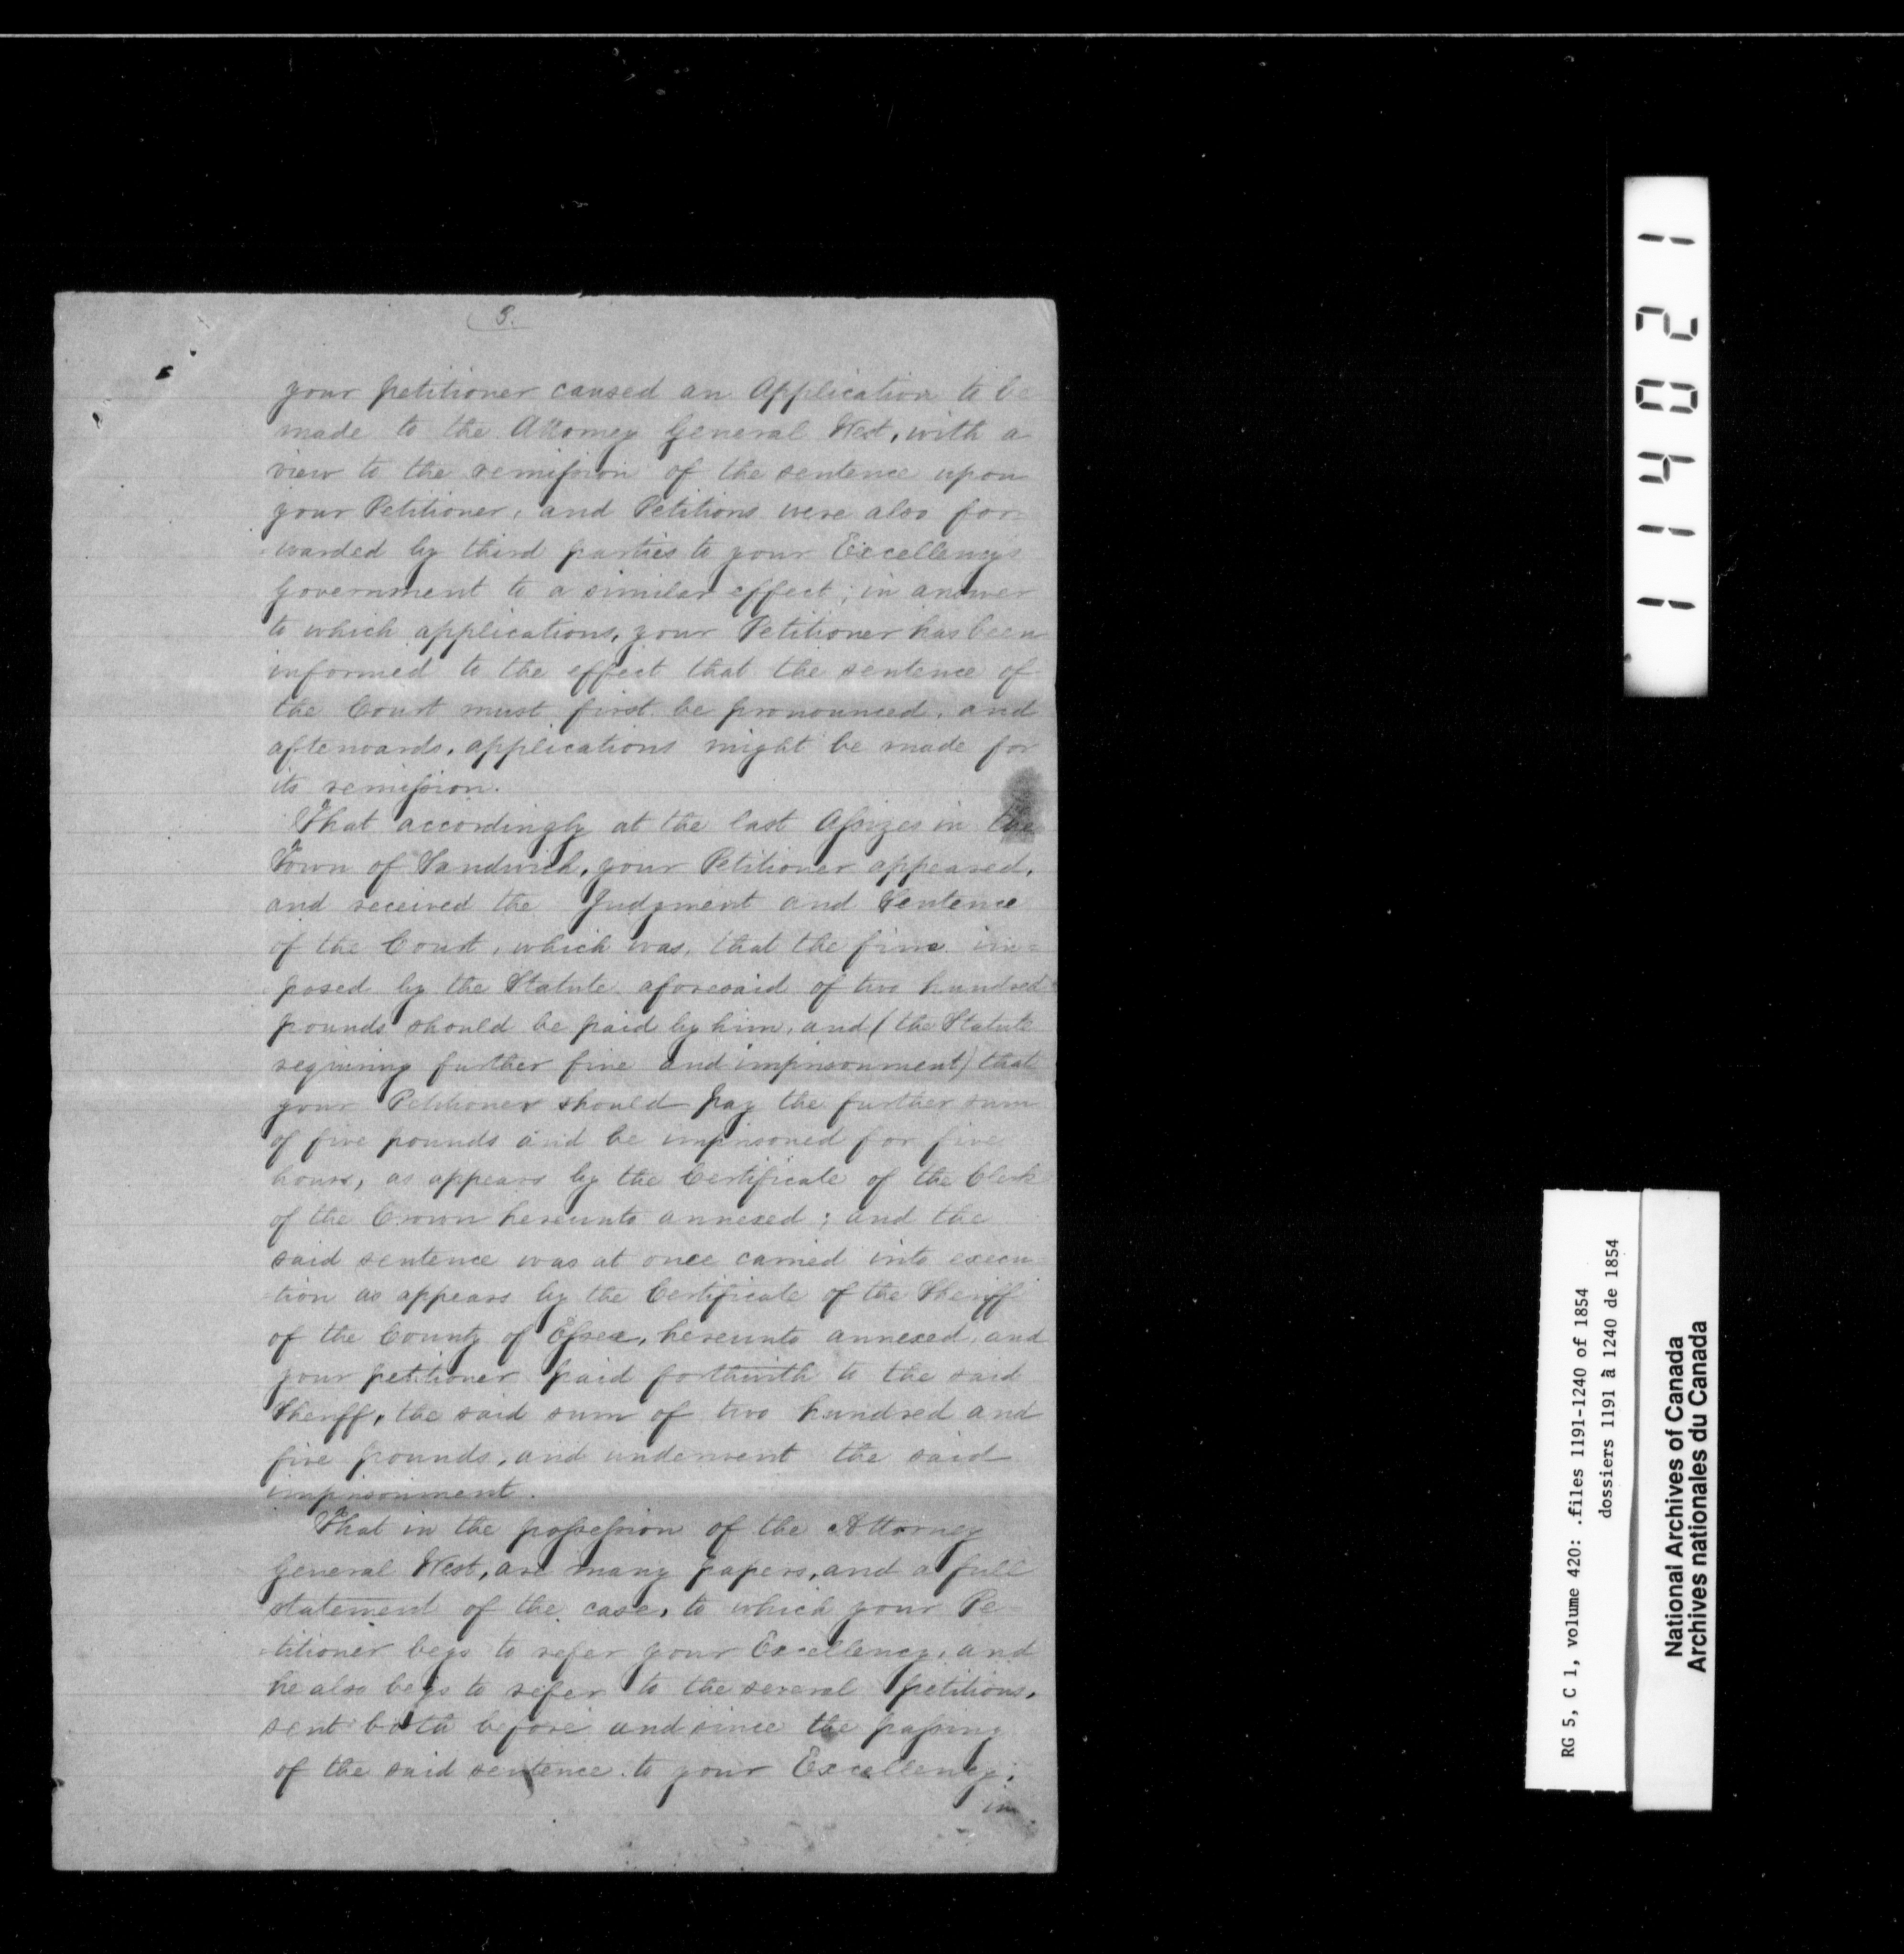 3.
your petitioner caused an Application to be
made to the Attorney General West, with a
view to the remission of the sentence upon
your Petitioner, and Petitions were also for-
-warded by third parties to your Excellency's
Government to a similar effect; in answer
to which applications, your Petitioner has been
informed to the effect that the sentence of
the Court must first be pronounced, and
afterwards, applications might be made for
its remission.
That accordingly at the last Assizes in the
Town of Sandwich, your Petitioner appeared,
and received the Judgment and Sentence
of the Court, which was, that the fine im=
posed by the Statute aforesaid of two hundred
pounds should be paid by him, and (the Statute
requiring further fine and imprisonment) that
your Petitioner should pay the further sum
of five pounds and be imprisoned for five
hours, as appears by the Certificate of the Clerk
of the Crown hereunto annexed; and the
said sentence was at once carried into execu
-tion as appears by the Certificate of the Sheriff
of the County of Essex, hereunto annexed, and
your petitioner paid forthwith to the said
Sheriff, the said sum of two hundred and
five pounds, and underwent the said
imprisonment.
That in the possession of the Attorney
General West, are many papers, and a full
statement of the case, to which your Pe-
-titioner begs to refer your Excellency, and
he also begs to refer to the several petitions,
sent both before and since the passing
of the said sentence to your Excellency;
in
114021
RG 5, C 1, volume 420: .files 1191-1240 of 1854
dossiers 1191 à 1240 de 1854
National Archives of Canada
Archives nationales du Canada